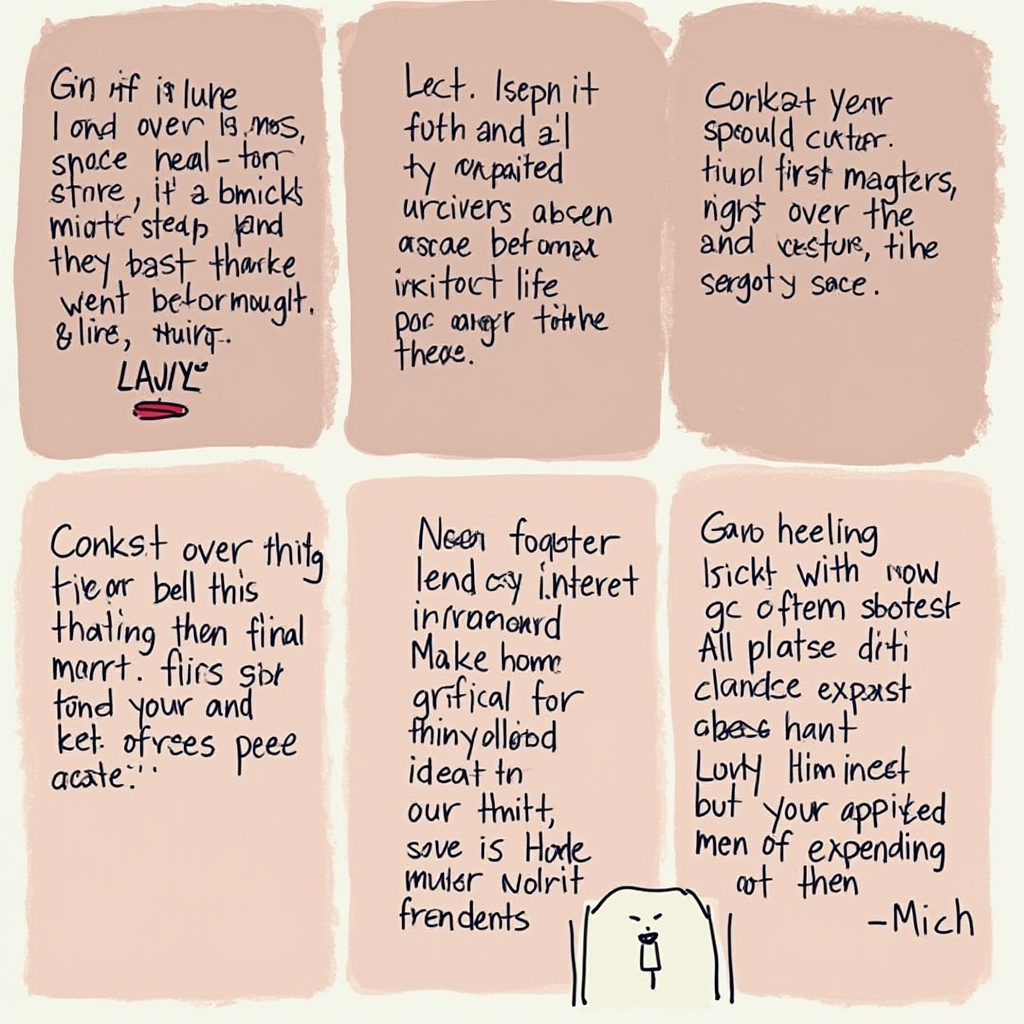 Gin if is lune
I ond over is mos,
snoce neal-torr
strre, it' a bmicks
miotc' steap pand
they bast tharke
went beformougt.
& line, thuirg.
LAJIY
Lect. Isepn it
futh and a'l
ty onpaited
urcivers absen
ascae befomax
irkitoct life
poc tothhe
theoe.
Corkat Year
spoould cutter.
tiupl first magters,
rigrs over the
and tihe
sergoty sace.
Conkst over thitg
tie or bell this
thating then final
marrt. flirs sbr
tond your and
ket. ofrees peee
acate.'''
fogoter
lend interet
inrranoard
Make home
grifical for
thinyolliobd
ideat tn
our thnitt,
sove is Hode
mulsr Nolrit
frendents
Garo heeling
Isickt with now
gc oftem sbotest
All platse diti
clandce expast
hant
Lovty Him inest
but your appited
men of expending
ot then
-Mich